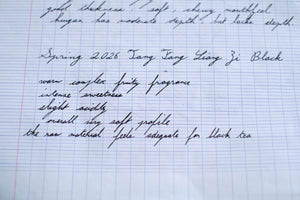 good thickness, soft, chewy mouthfeel
huigan has moderate depth, but lacks depth
Spring 2026 Tang Tang Liang Zi Black
warm complex fruity fragrance
intense sweetness
slight acidity
overall very soft profile
the raw material feels adequate for black tea